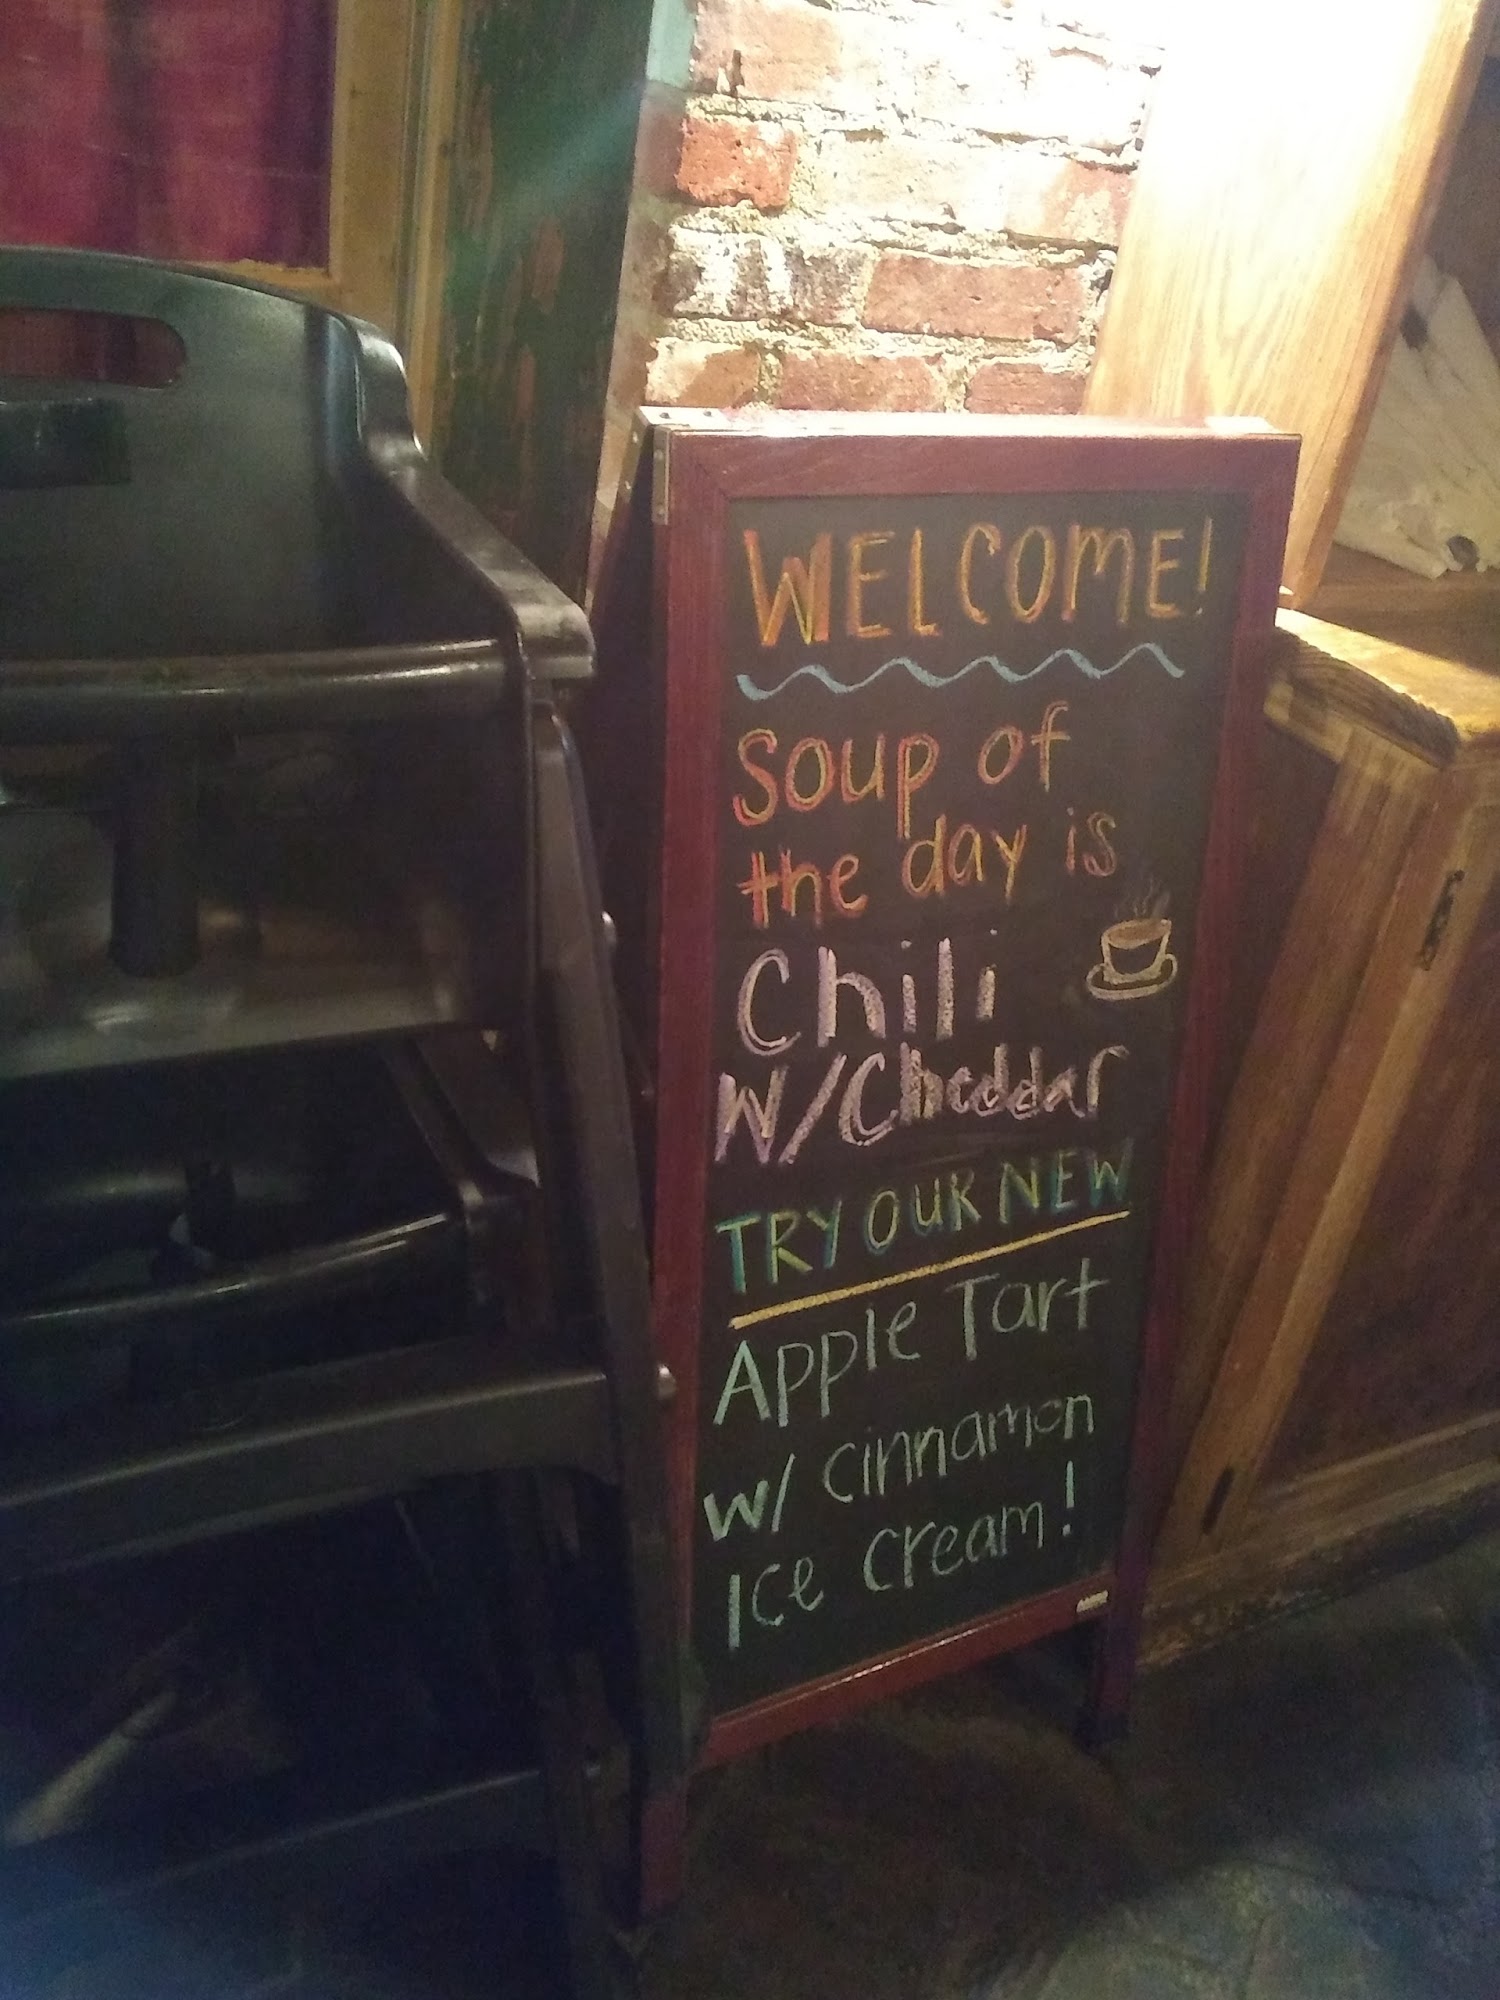 WELCOME!
Soup of
the day is
Chili
W/Cheddar
TRY OUR NEW
Apple Tart
w/ cinnamon
Ice cream!